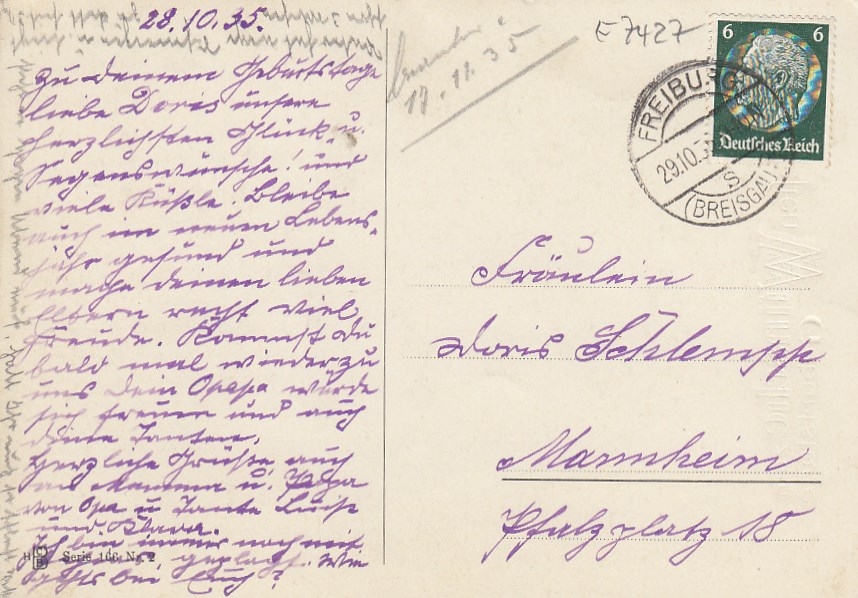 28.10.35.
Zu deinem Geburtstage
liebe Doris unsere
herzlichsten Glück u.
Segenswünsche! und
viele Küßle. Bleibe
auch im neuen Lebens-
jahr gesund und
mache deinen lieben
Eltern recht viel
Freude. Kommst du
bald mal wieder zu
uns dein Opapa würde
sich freuen und auch
deine Tanten.
Herzliche Grüße auch
an Mamma u. Papa
von Opa u Tante Luise
und Klara.
Ich bin immer noch mit
geplagt. Wie
gehts bei Euch?
H Serie 166 Nr. 2
17.11.35
E 7427
6 6
Deutsches Reich
FREIBURG
29.10.3
S
(BREISGAU)
Fräulein
Doris Schlempp
Mannheim
Pfalzplatz 18